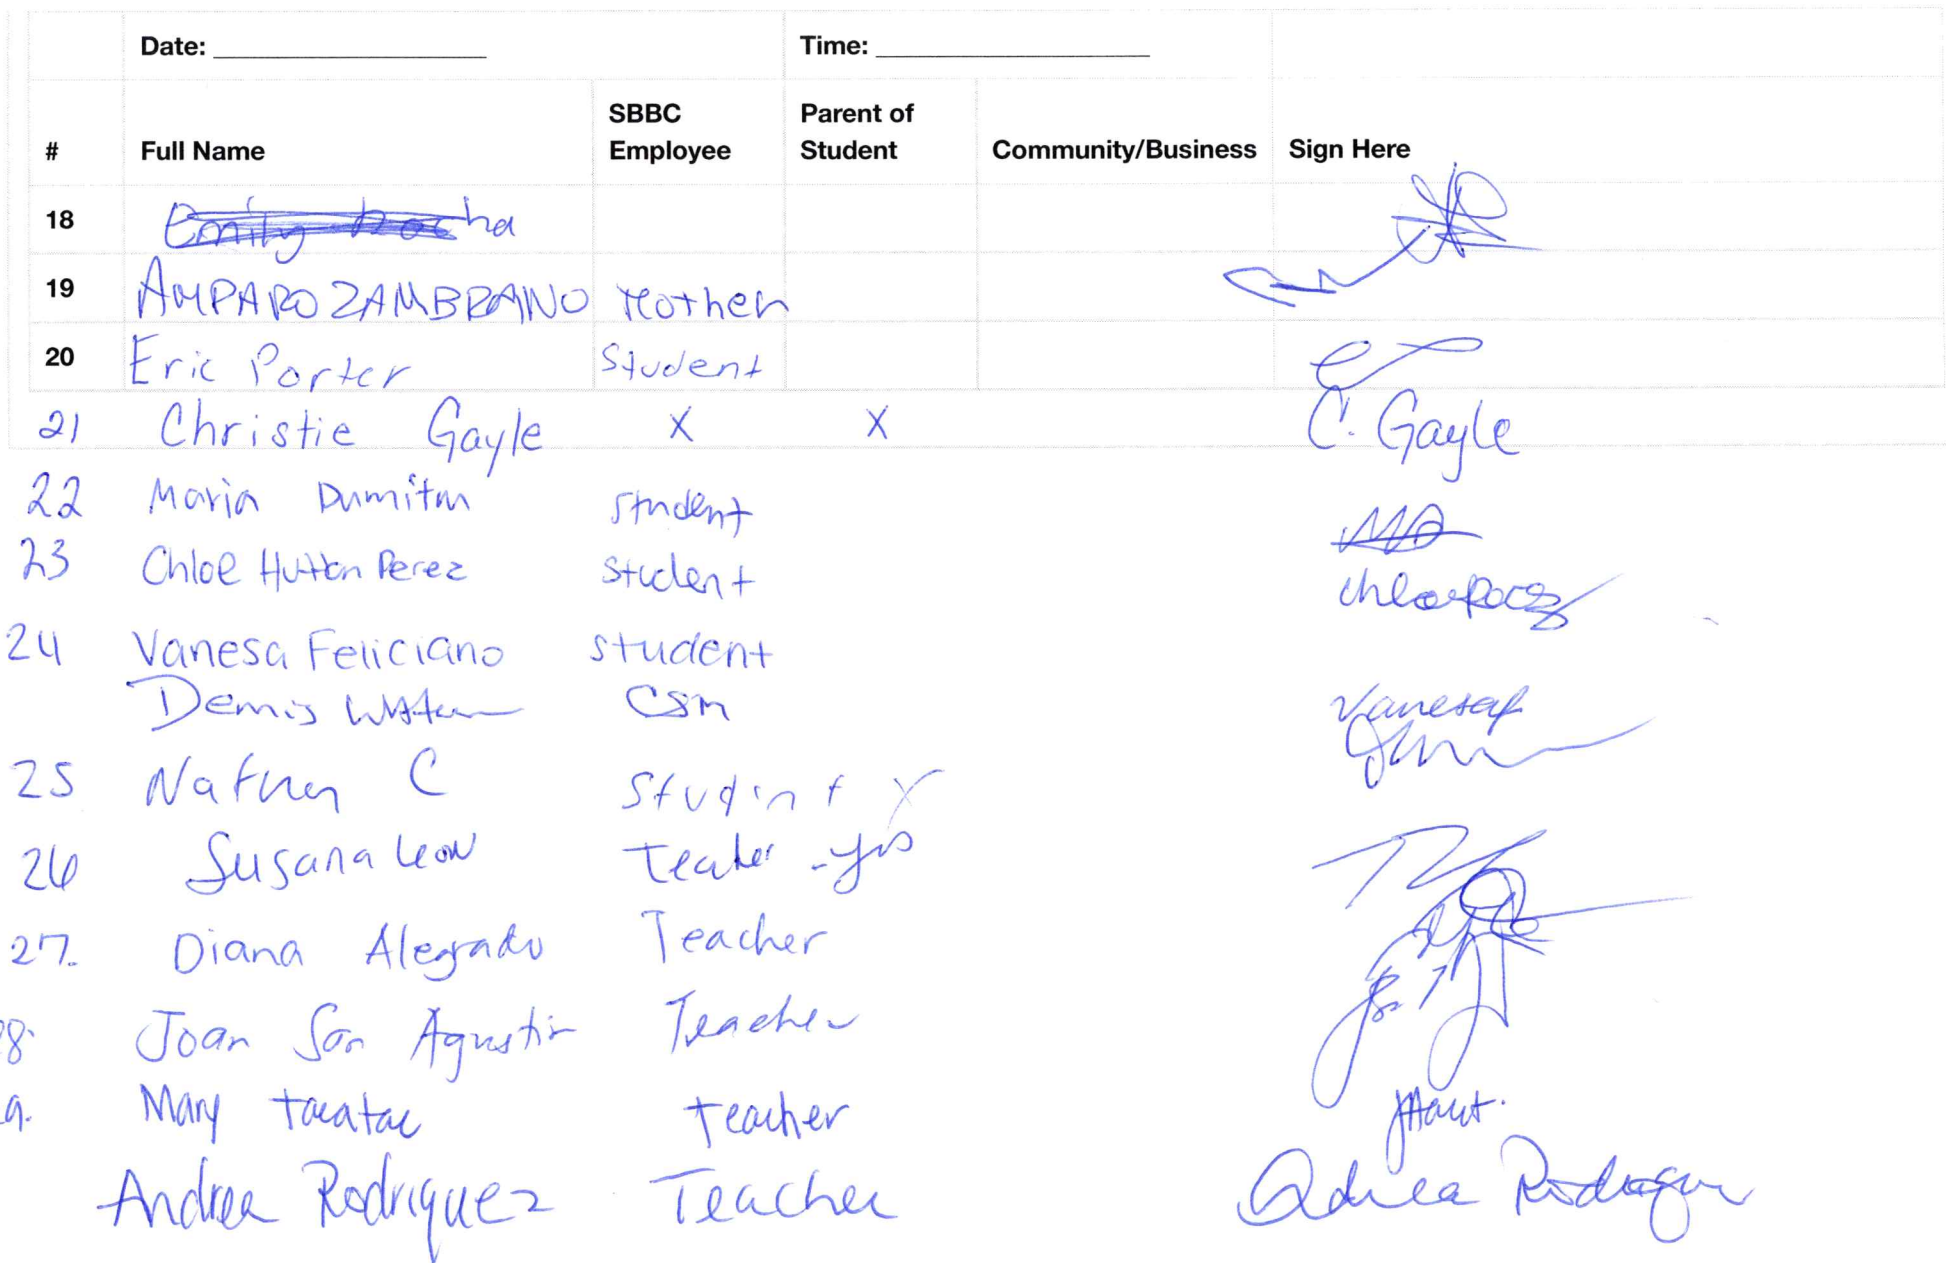 Date: Time:
# Full Name SBBC Employee Parent of Student Community/Business Sign Here
18 Emily Rocha
19 AMPARO ZAMBRANO Mother
20 Eric Porter Student
21 Christie Gayle X X C. Gayle
22 Maria Dumitru student
23 Chloe Hutton Perez student
24 Vanesa Feliciano student
Vanesaf
CSM
25 C
26 Susana Leon Teacher -yes
27. Diana Alegrado Teacher
8. Joan San Agustin Teacher
9. Mary Tacatac Teacher
Andrea Rodriguez Teacher Andrea Rodriguez